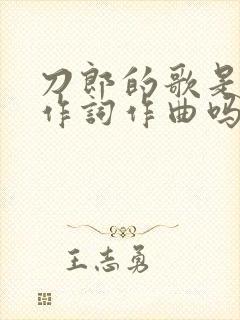 刀郎的歌是
作詞作曲吗
王志勇